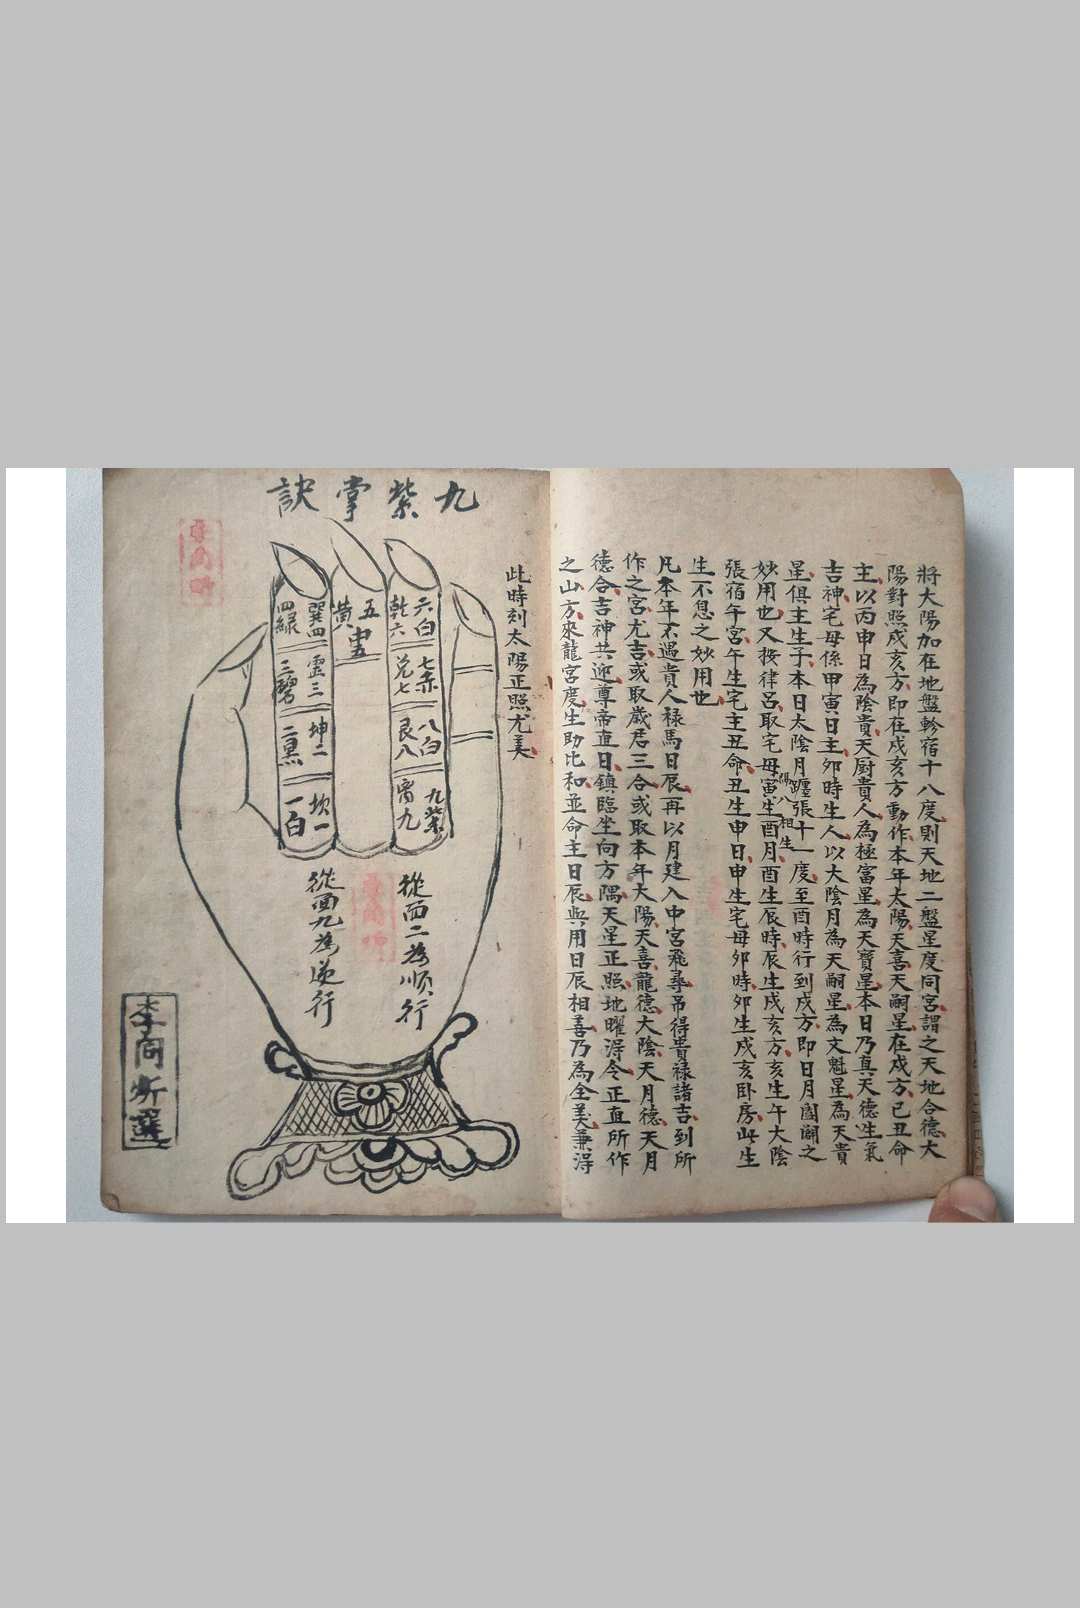 將大陽加在地盤軫宿十八度則天地二盤星度同宮謂之天地合德大
陽對照戍亥方即在戍亥方動作本年太陽天喜天嗣星在戍方己丑命
主以丙申日為陰貴天厨貴人為極富星為天寶星本日乃真天德生氣
吉神宅母係甲寅日主夘時生人以大陰月為天嗣星為文魁星為天貴
星俱主生子本日太陰月躔張十一度至酉時行到戍方即日月闔闢之
陽八相生
妙用也又按律呂取宅母寅生酉月酉生辰時辰生戍亥方亥生午大陰
張宿午宮午生宅主丑命丑生申日申生宅母夘時夘生戍亥卧房此生
生不息之妙用也
凡本年不過貴人禄馬日辰再以月建入中宮飛尋吊得貴禄諸吉到所
作之宮尤吉或取歲君三合或取本年大陽天喜龍德大陰天月德天月
德合吉神共迎尊帝直日鎮臨坐向方隅天星正照地曜淂令正直所作
之山方來龍宮度生助比和並命主日辰與用日辰相善乃為全美兼淂
此時刻太陽正照尤美
九紫掌訣
六白
乾六
七赤
兌七
八白
艮八
九紫
离九
五黄
中五
巽四
四緑
震三
三碧
坤二
二黒
坎一
一白
從面二為順行
從面九為逆行